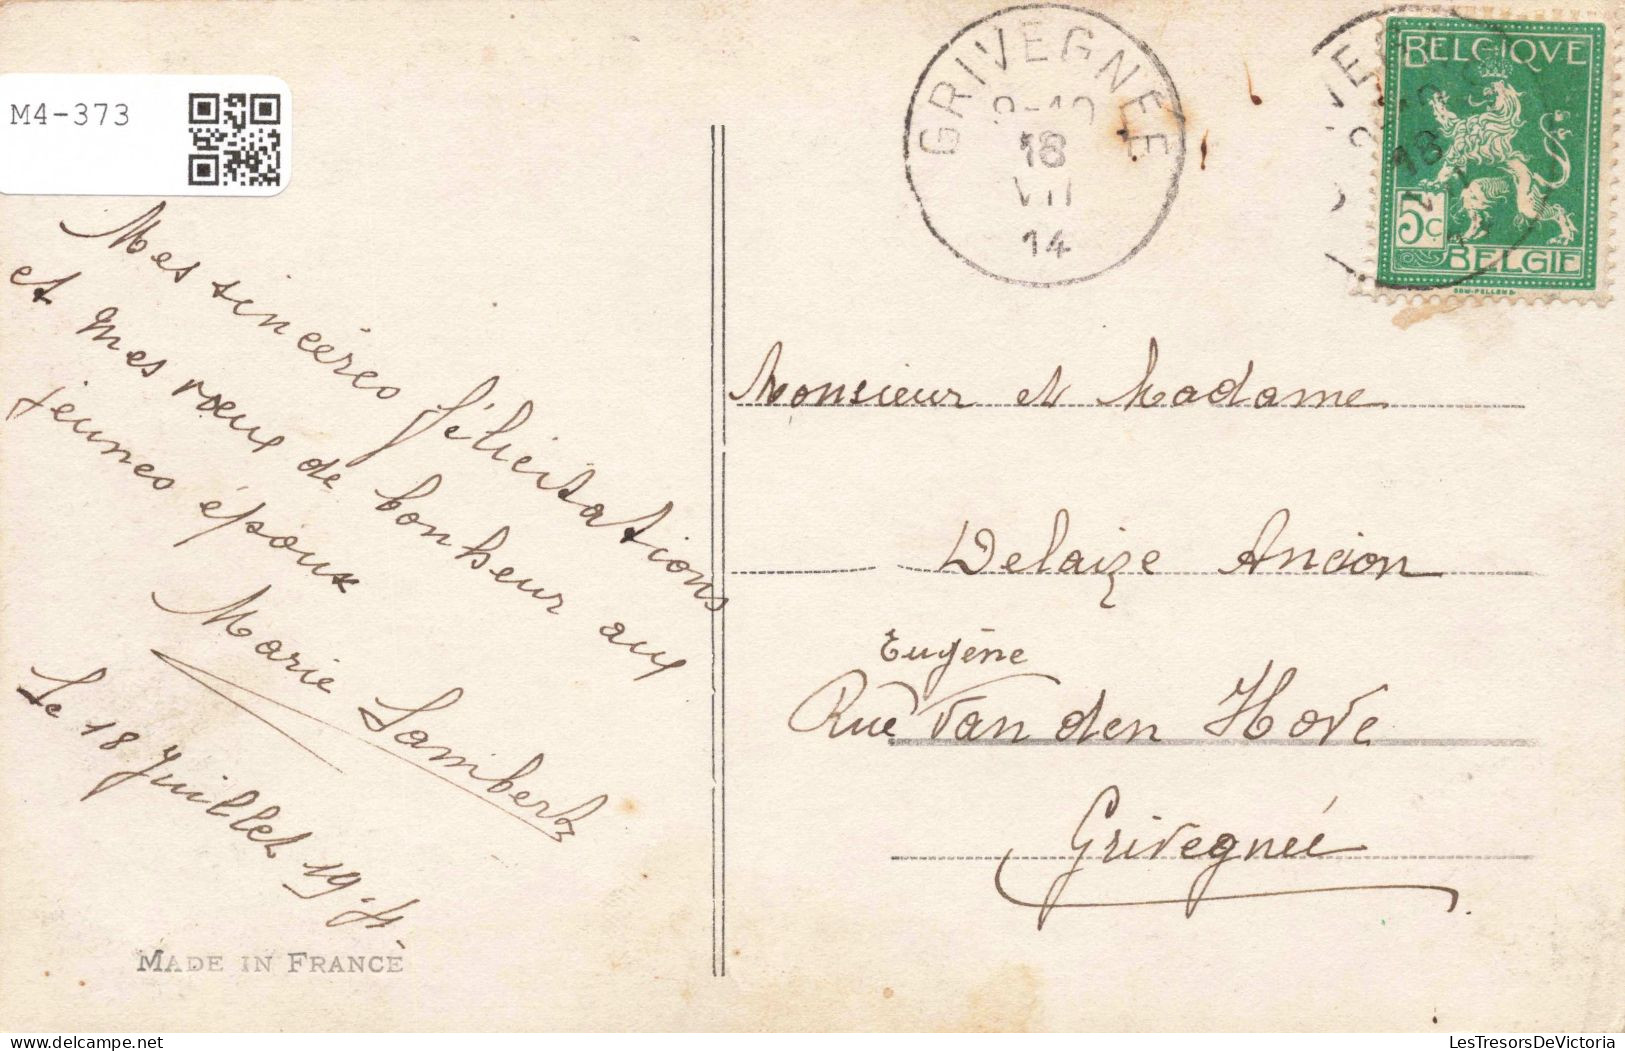 M4-373
Mes sincères félicitations
et mes vœux de bonheur aux
jeunes époux
Marie Lambertz
Le 18 Juillet 1914
MADE IN FRANCE
GRIVEGNEE
18
VII
14
BELGIQVE
5C
BELGIE
18
Monsieur et Madame
Delaize Ancion
Eugène
Rue Van den Hove
Grivegnée
LesTresorsDeVictoria
https://www.delcampe.net